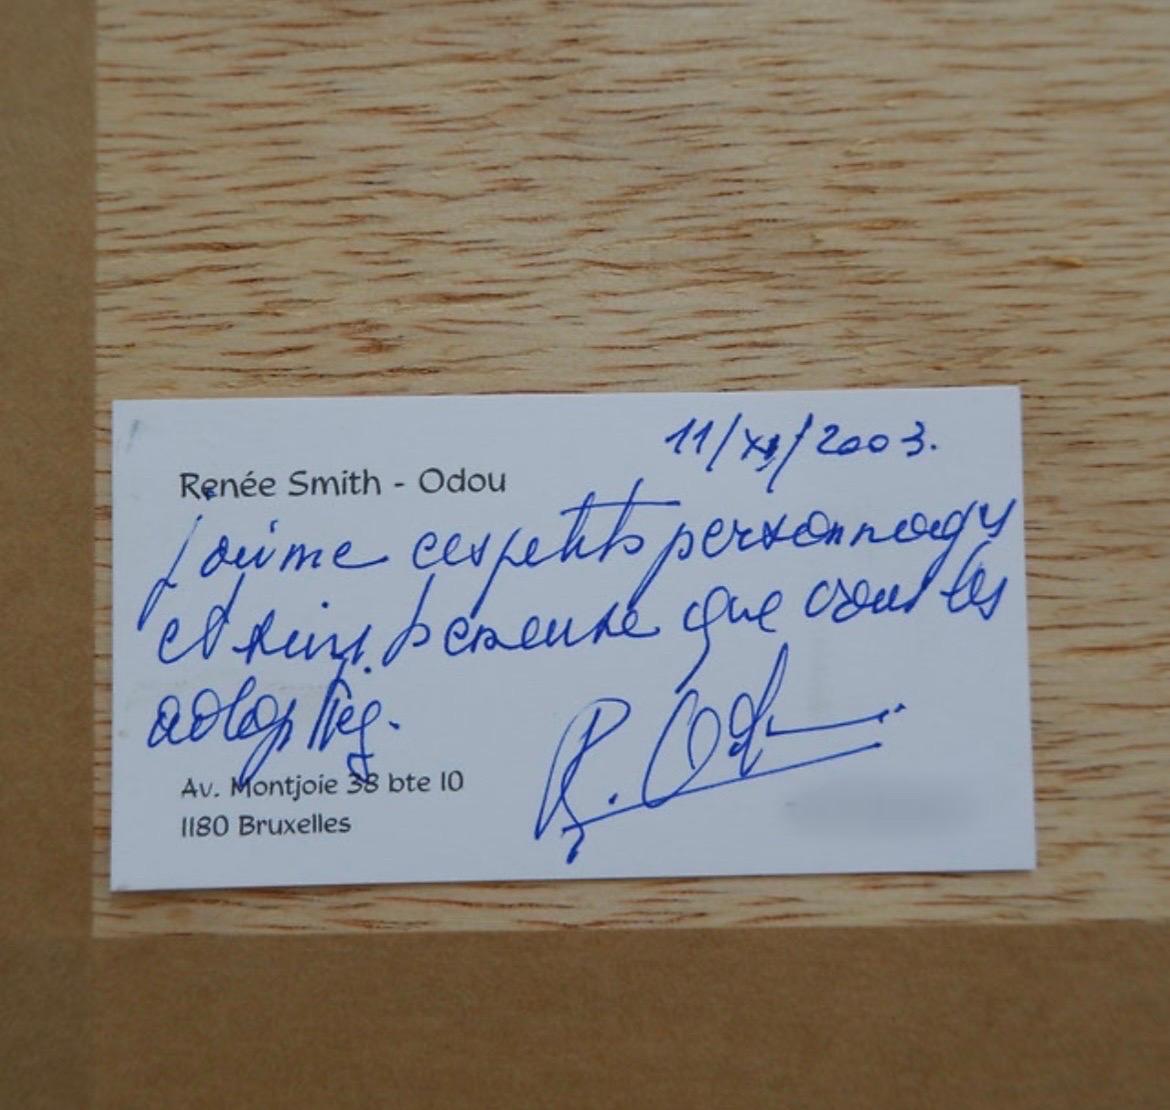 11/XI/2003.
Renée Smith - Odou
j'aime ces petits personnages
et suis heureuse que vous les
adoptiez.
R. Odou
Av. Montjoie 38 bte 10
1180 Bruxelles